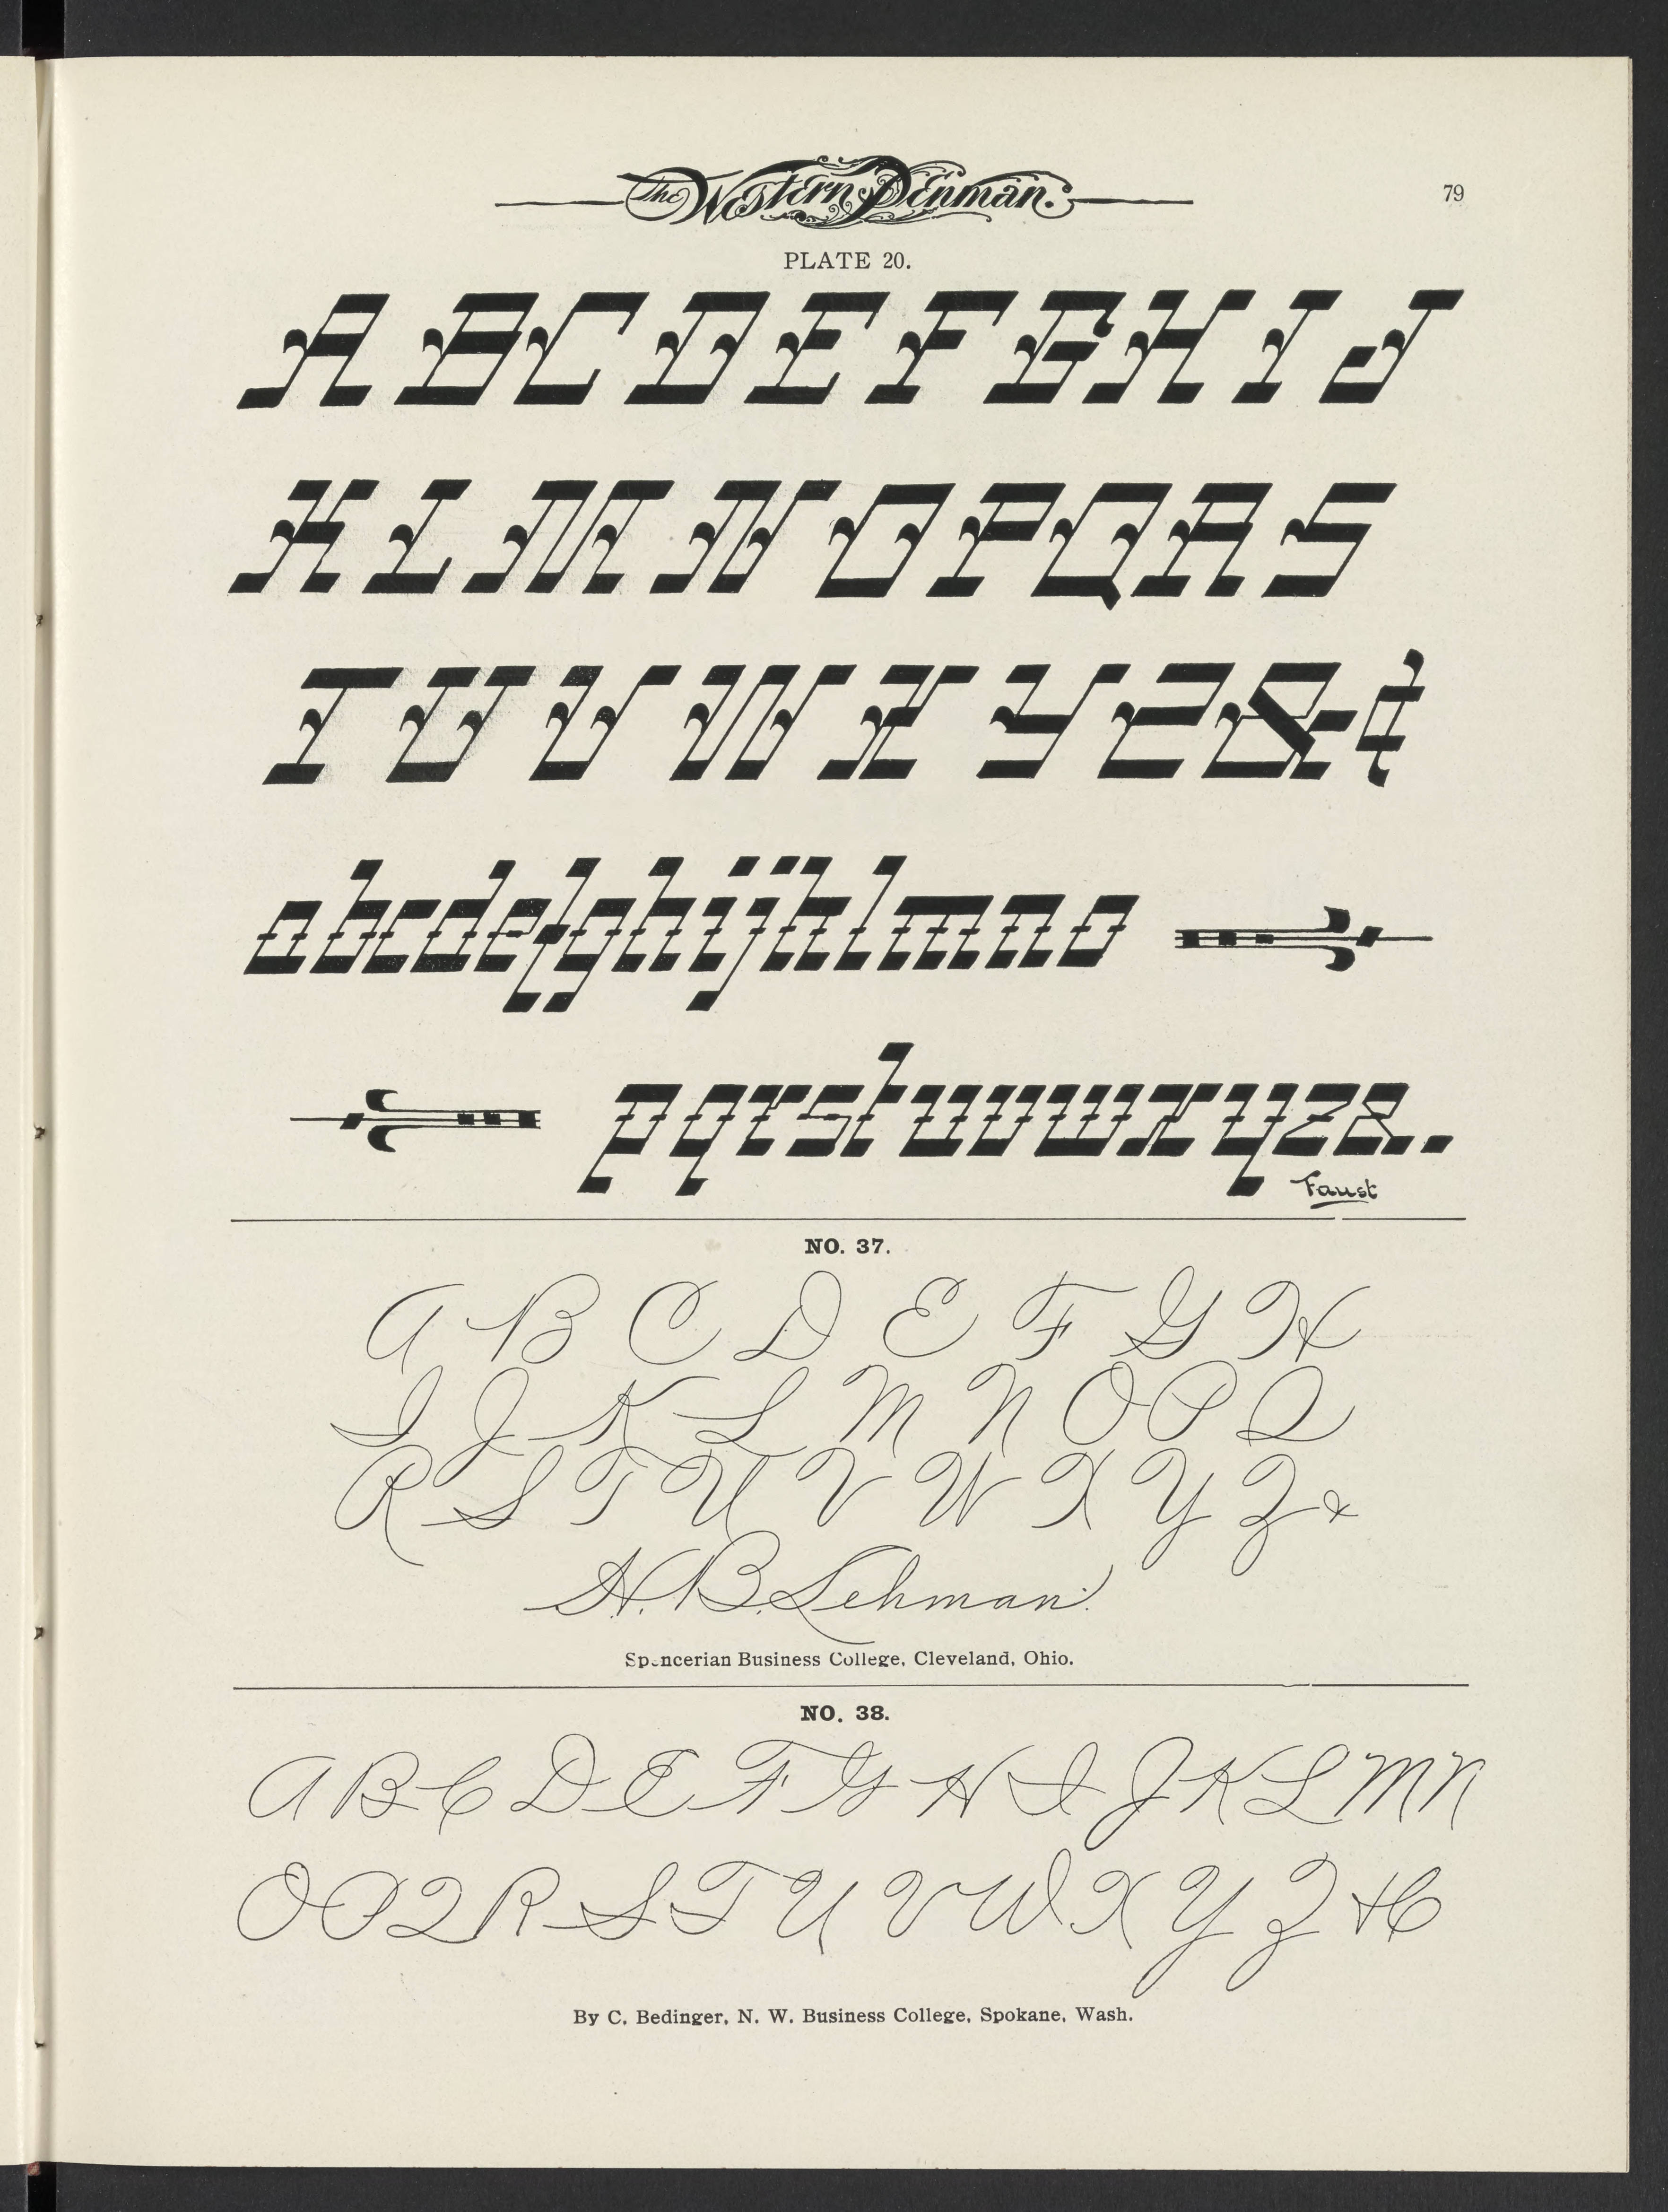 The Western Penman.
79
PLATE 20.
A B C D E F G H I J
K L M N O P Q R S
T U V W X Y Z & ¢
a b c d e f g h i j k l m n o
p q r s t u v w x y z & .
Faust
NO. 37.
A B C D E F G H
I J K L M N O P Q
R S T U V W X Y Z &
H. B. Lehman.
Spencerian Business College, Cleveland, Ohio.
NO. 38.
A B C D E F G H I J K L M N
O P Q R S T U V W X Y Z
By C. Bedinger, N. W. Business College, Spokane, Wash.